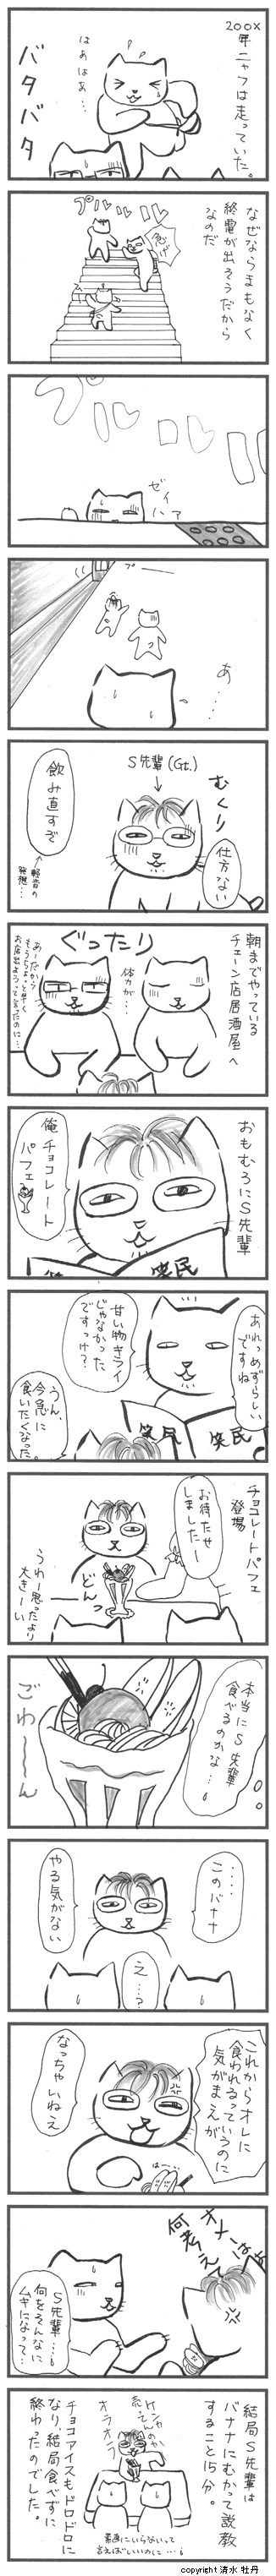 200X
年ニャフは走っていた。
はぁはぁ…
バタバタ
なぜならまもなく
終電が出そうだから
なのだ
プルルルル
急げ
プルルル
ゼイ
ハァ
プーーー
あ・・・・
S先輩(Gt.)
むくり
仕方ない
飲み直すぞ
軽音の
発想…
朝までやっている
チェーン店居酒屋へ
ぐったり
体力が…
あーだから
もうちょっと早く
お店出ようって言ったのに…
おもむろにS先輩
俺チョコレート
パフェ
笑民
あれっめずらしい
ですね
甘い物キライ
じゃなかった
ですっけ?
笑民
笑民
うん、
今急に
食いたくなった。
チョコレートパフェ
登場
お待たせ
しましたー
どんっ
うわー思ったより
大きーい
本当にS先輩
食べるのかな…
ごわ〜〜ん
・・・・
このバナナ
やる気がない
え…?
これからオレに
食われるっていうのに
気がまえが
なっちゃいねえ
はー…
オメーはよ
何考えて
S先輩…
何をそんなに
ムキになって…
結局S先輩は
バナナにむかって説教
すること15分。
ケンカ
売ってんのか
オラオラ
素直にいらないって
言えばいいのに…
チョコアイスもドロドロに
なり、結局食べずに
終わったのでした。
copyright 清水 牡丹